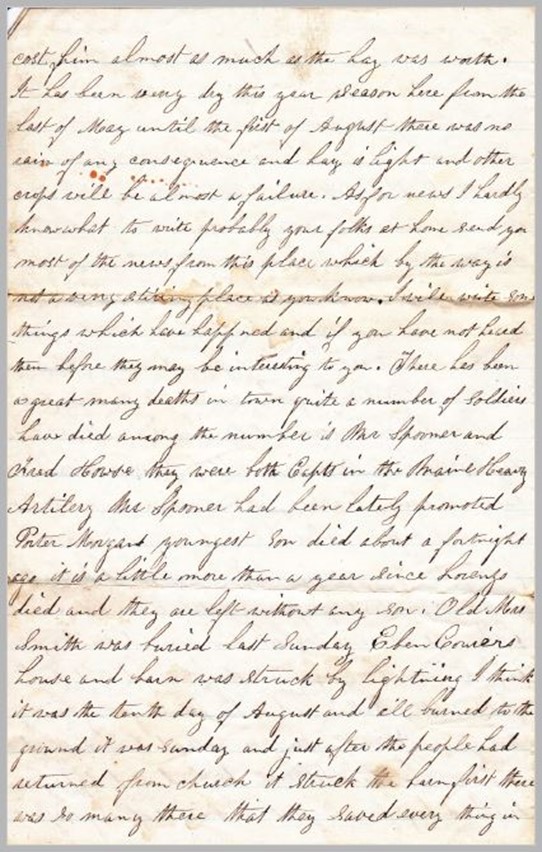 cost him almost as much as the hay was worth.
It has been very dry this year season here from the
last of May until the first of August there was no
rain of any consequence and hay is light and other
crops will be almost a failure. As for news I hardly
know what to write probably your folks at home send you
most of the news from this place which by the way is
not a very stiring place as you know. I will write some
things which have happned and if you have not heard
them before they may be interesting to you. There has been
a great many deaths in town quite a number of soldiers
have died among the number is Mr Spooner and
Fred Howse they were both Capts in the Maine Heavy
Artilery Mr Spooner had been lately promoted
Porter Morgans youngest son died about a fortnight
ago it is a little more than a year since Lorenzo
died and they are left without any son. Old Mrs
Smith was buried last Sunday Eben
house and barn was struck by lightning I think
it was the tenth day of August and all burned to the
ground it was sunday and just after the people had
returned from church it struck the barn first there
was so many there that they saved every thing in